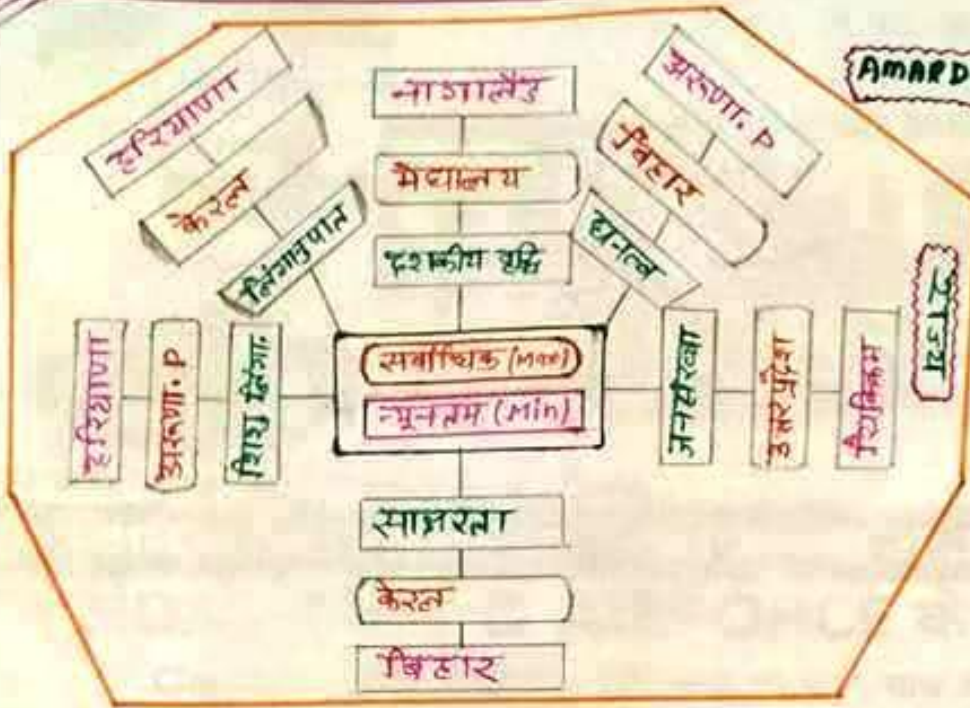 AMARD
राज्य
हरियाणा
केरल
लिंगानुपात
नागालैंड
मेघालय
दशकीय वृद्धि
अरूणा. P
बिहार
घनत्व
हरियाणा
अरूणा. P
शिशु लिंगा.
सर्वाधिक (Max)
न्यूनतम (Min)
जनसंख्या
उत्तर प्रदेश
सिक्किम
साक्षरता
केरल
बिहार